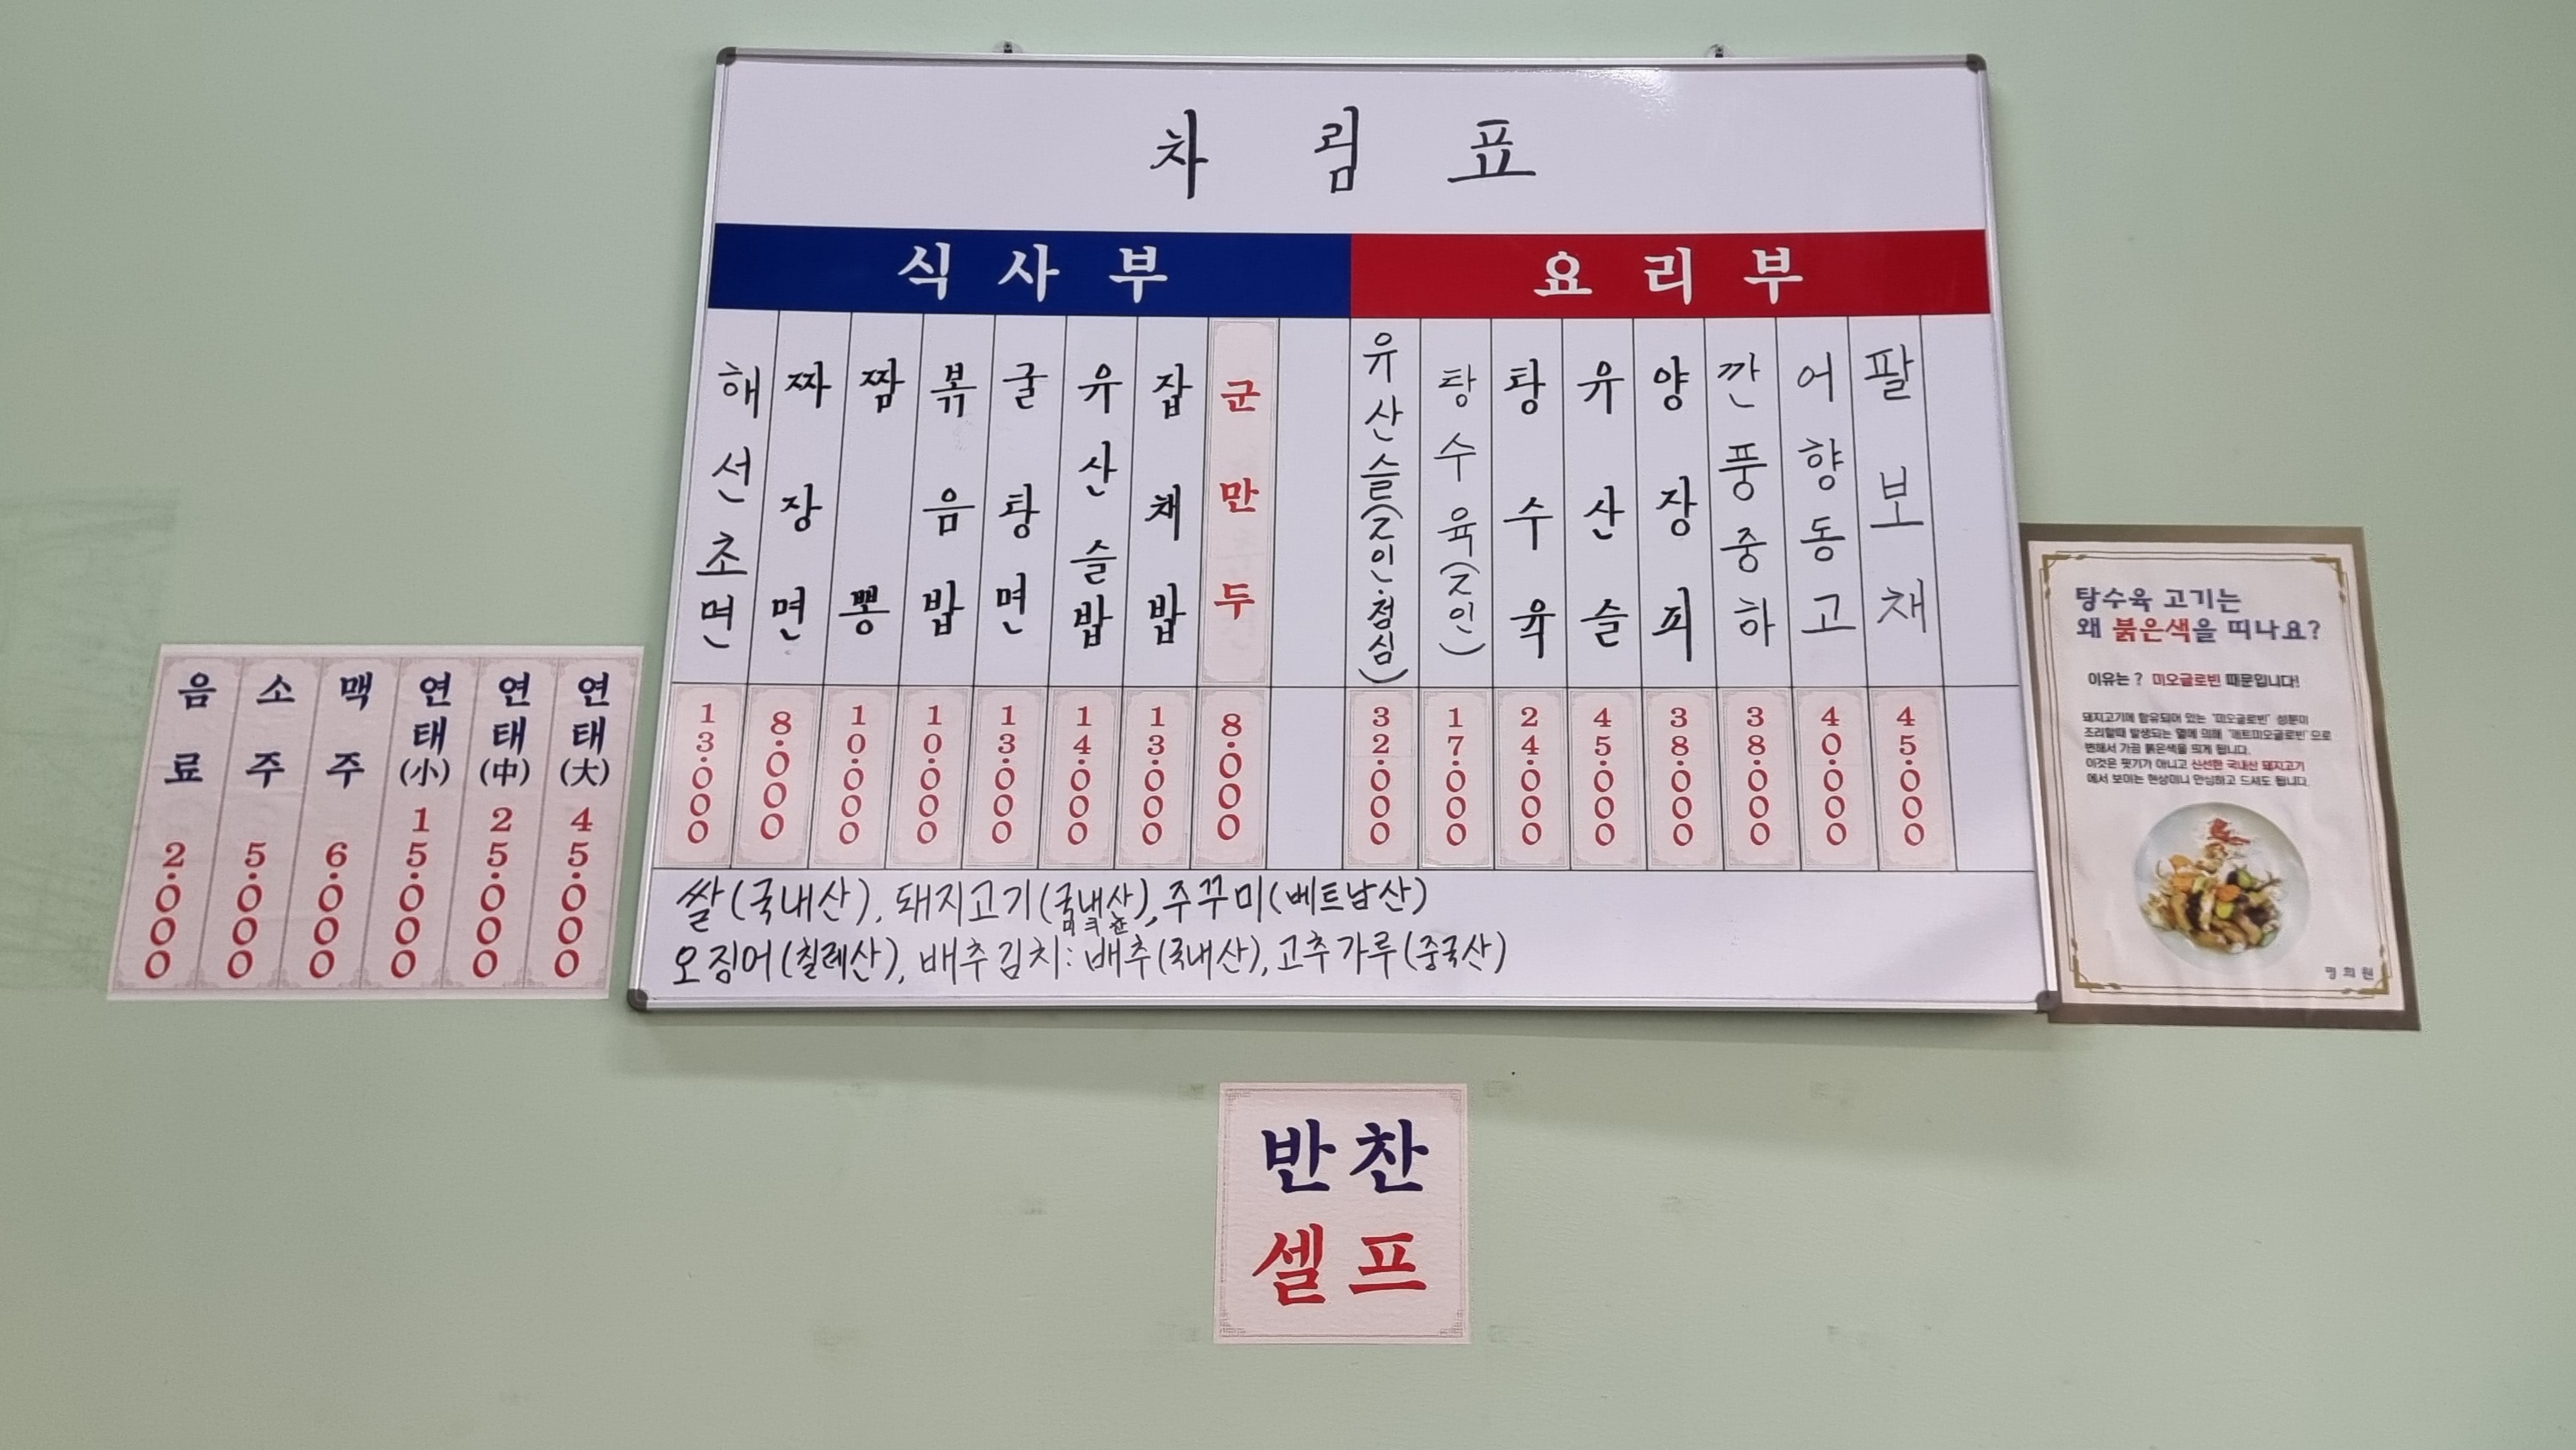 차림표
식사부
요리부
해선초면 13.000
짜장면 8.000
짬뽕 10.000
볶음밥 10.000
굴탕면 13.000
유산슬밥 14.000
잡채밥 13.000
군만두 8.000
유산슬(2인.점심) 32.000
탕수육(2인) 17.000
탕수육 24.000
유산슬 45.000
양장피 38.000
깐풍중하 38.000
어향동고 40.000
팔보채 45.000
쌀(국내산), 돼지고기(국내산), 주꾸미(베트남산)
오징어(칠레산), 배추김치: 배추(국내산), 고추가루(중국산)
음료 2.000
소주 5.000
맥주 6.000
연태(小) 15.000
연태(中) 25.000
연태(大) 45.000
탕수육 고기는
왜 붉은색을 띠나요?
이유는? 미오글로빈 때문입니다!
돼지고기에 함유되어 있는 '미오글로빈' 성분이
조리할때 발생되는 열에 의해 '매트미오글로빈'으로
변해서 가끔 붉은색을 띄게 됩니다.
이것은 핏기가 아니고 신선한 국내산 돼지고기
에서 보이는 현상이니 안심하고 드셔도 됩니다.
평희원
반찬
셀프